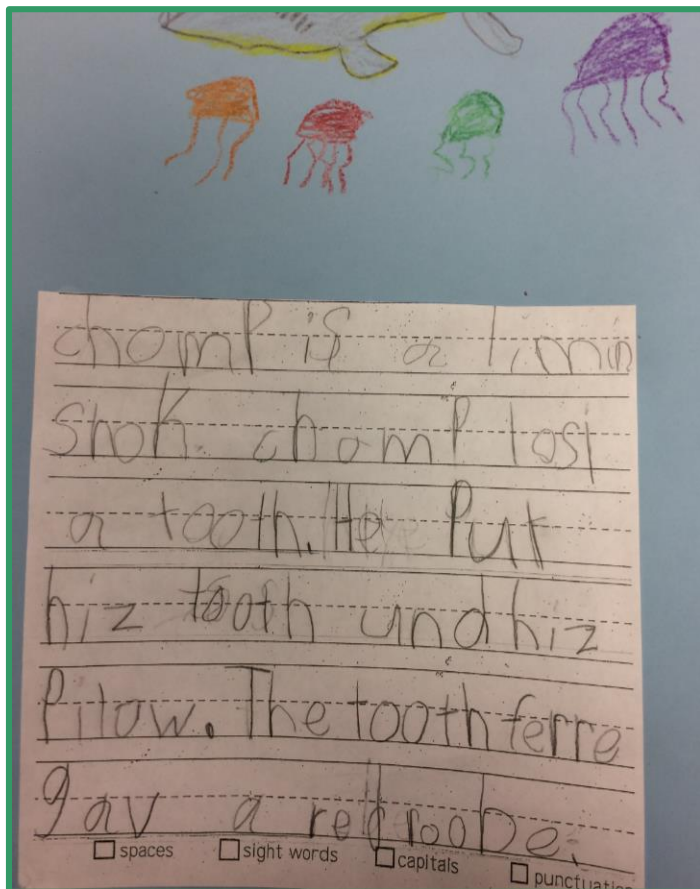 chomP is a limin
Shok. chomP lost
a tooth. He Put
hiz tooth und hiz
Pilow. The tooth ferre
gav a
spaces sight words capitals punctuatio